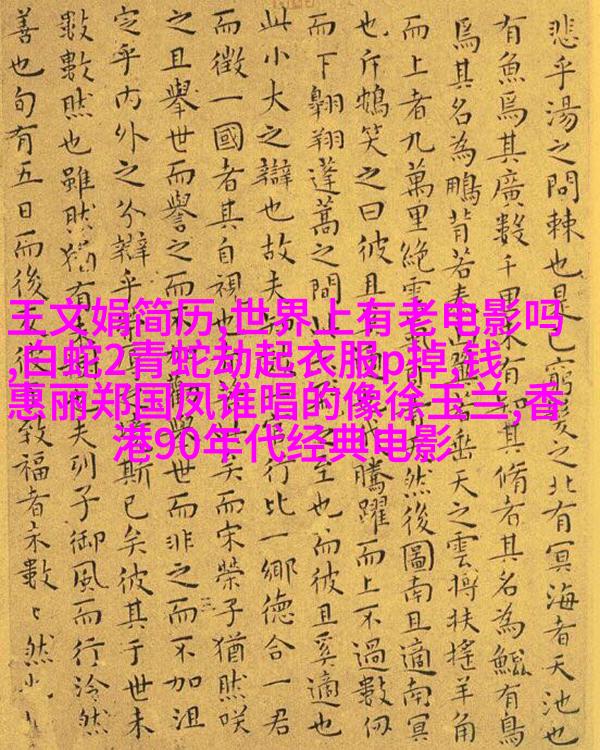 王文娟简历,世界上有老电影吗
,白蛇2青蛇劫起衣服p掉,钱
惠丽郑国凤谁唱的像徐玉兰,香
港90年代经典电影
悲乎湯之問棘也是窮髮之北有冥海者天池也
有魚焉其廣數千里未有知其脩者其名為鯤有鳥
焉其名為鵬背若泰山天之雲摶扶搖羊角
而上者九萬里絕雲氣青天然後圖南且適南冥
也斥鴳笑之曰彼且騰躍而上不過數仞
而下翱翔蓬蒿之間此之至也而彼且奚適也
此小大之辯也故夫行比一鄉德合一君
而徵一國者其自視也矣而宋榮子猶然咲
之且舉世而譽之而不舉世而非之而不加沮
定乎內外之分辯乎斯已矣彼其于世未
數數然也雖然猶有夫列子御風而行泠然
善也旬有五日而後致福者未數〻然